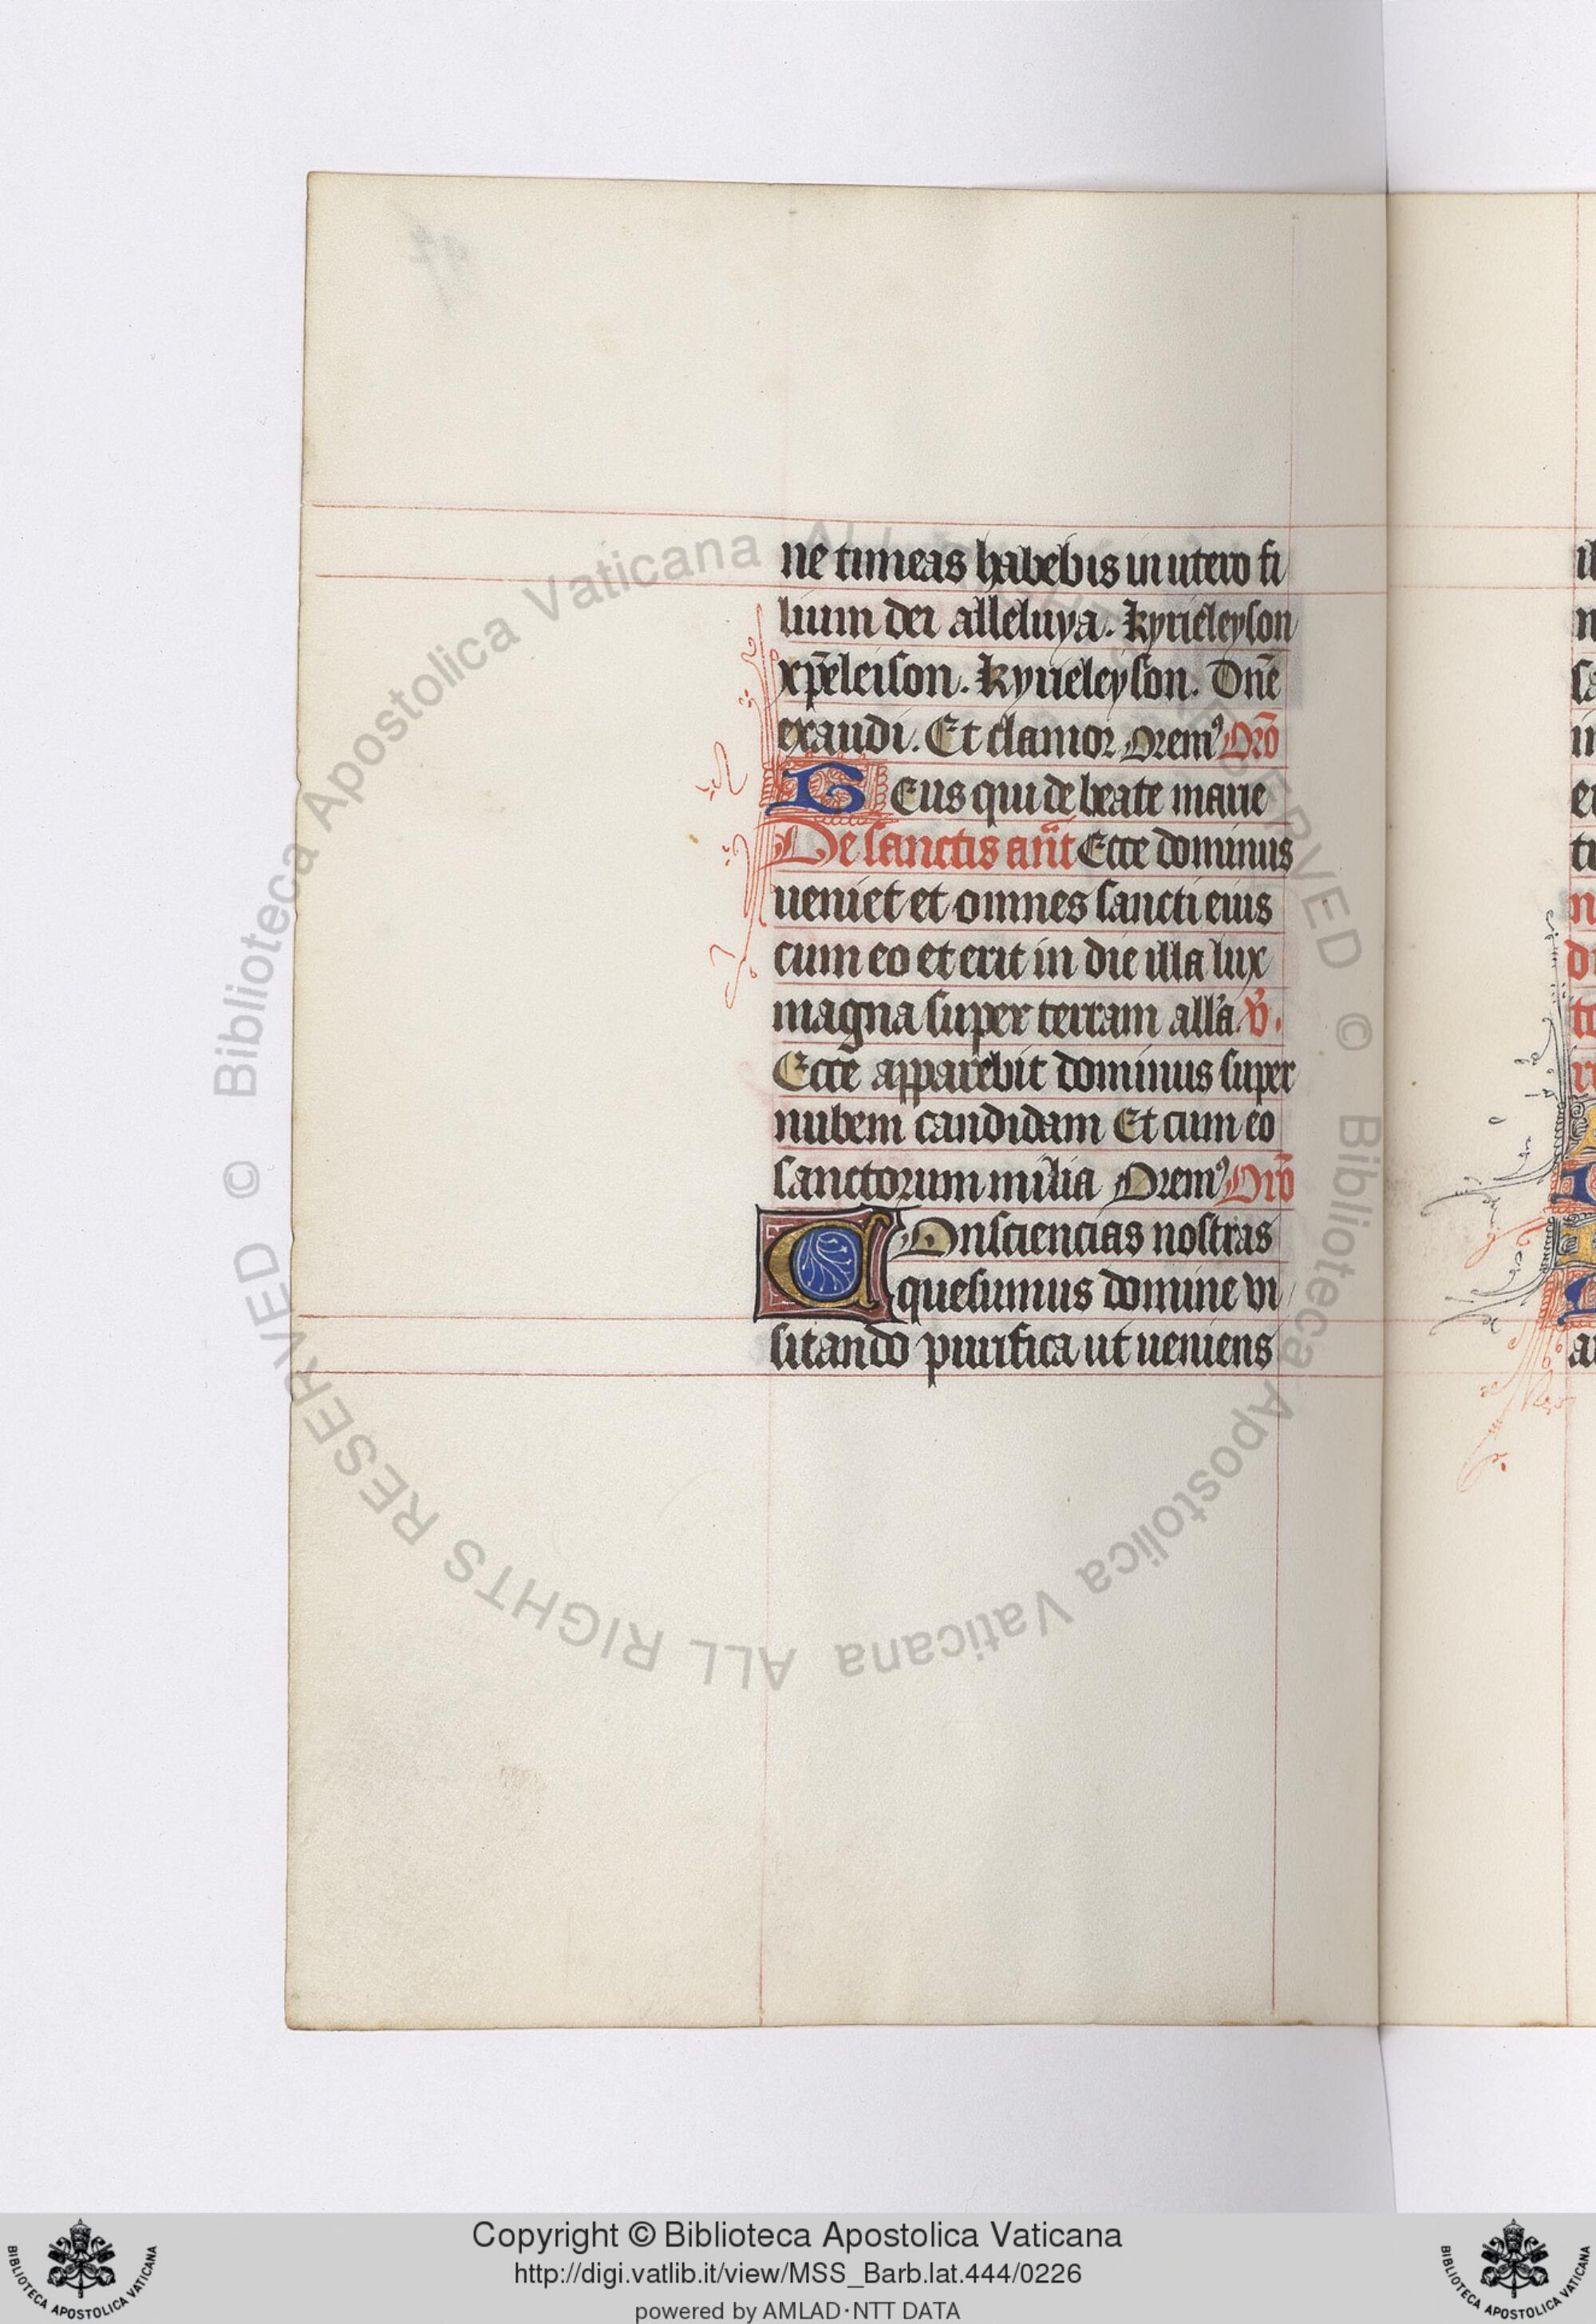 ne timeas habebis in utero fi
lium dei alleluya. kyrieleyson
xp̄eleison. kyrieleyson. Dn̄e
exaudi. Et clamor Oremꝰ Orō
DEus qui de beate marie
De sanctis an̄t Ecce dominus
ueniet et omnes sancti eius
cum eo et erit in die illa lux
magna super terram all'a. v̄.
Ecce apparebit dominus super
nubem candidam Et cum eo
sanctorum milia Oremꝰ Orō
COnsciencias nostras
quesumus domine vi
sitando purifica ut ueniens
© Biblioteca Apostolica Vaticana ALL RIGHTS RESERVED © Biblioteca Apostolica Vaticana ALL RIGHTS RESERVED
Copyright © Biblioteca Apostolica Vaticana
http://digi.vatlib.it/view/MSS_Barb.lat.444/0226
powered by AMLAD·NTT DATA
BIBLIOTECA APOSTOLICA VATICANA
BIBLIOTECA APOSTOLICA VATICANA